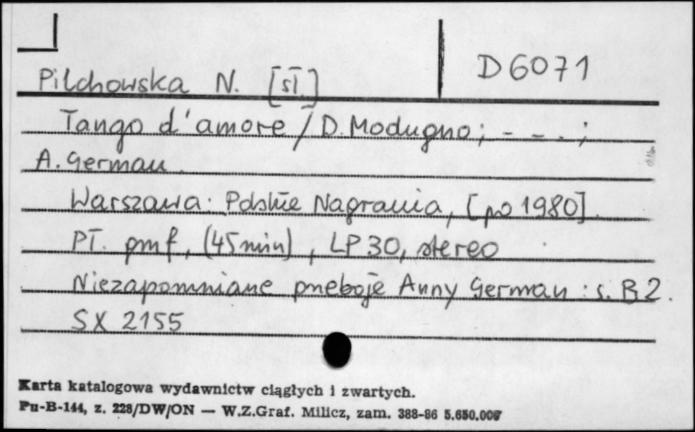 D 6071
Pilchowska N. [sł.]
Tango d'amore / D. Modugno ; - - - ;
A. German.
Warszawa : Polskie Nagrania, [po 1980].
Pł. gmf, (45 min), LP 30, stereo
Niezapomniane przeboje Anny German : s. B 2.
SX 2155
Karta katalogowa wydawnictw ciągłych i zwartych.
Pu-B-144, z. 228/DW/ON — W.Z.Graf. Milicz, zam. 388-86 5.650.000